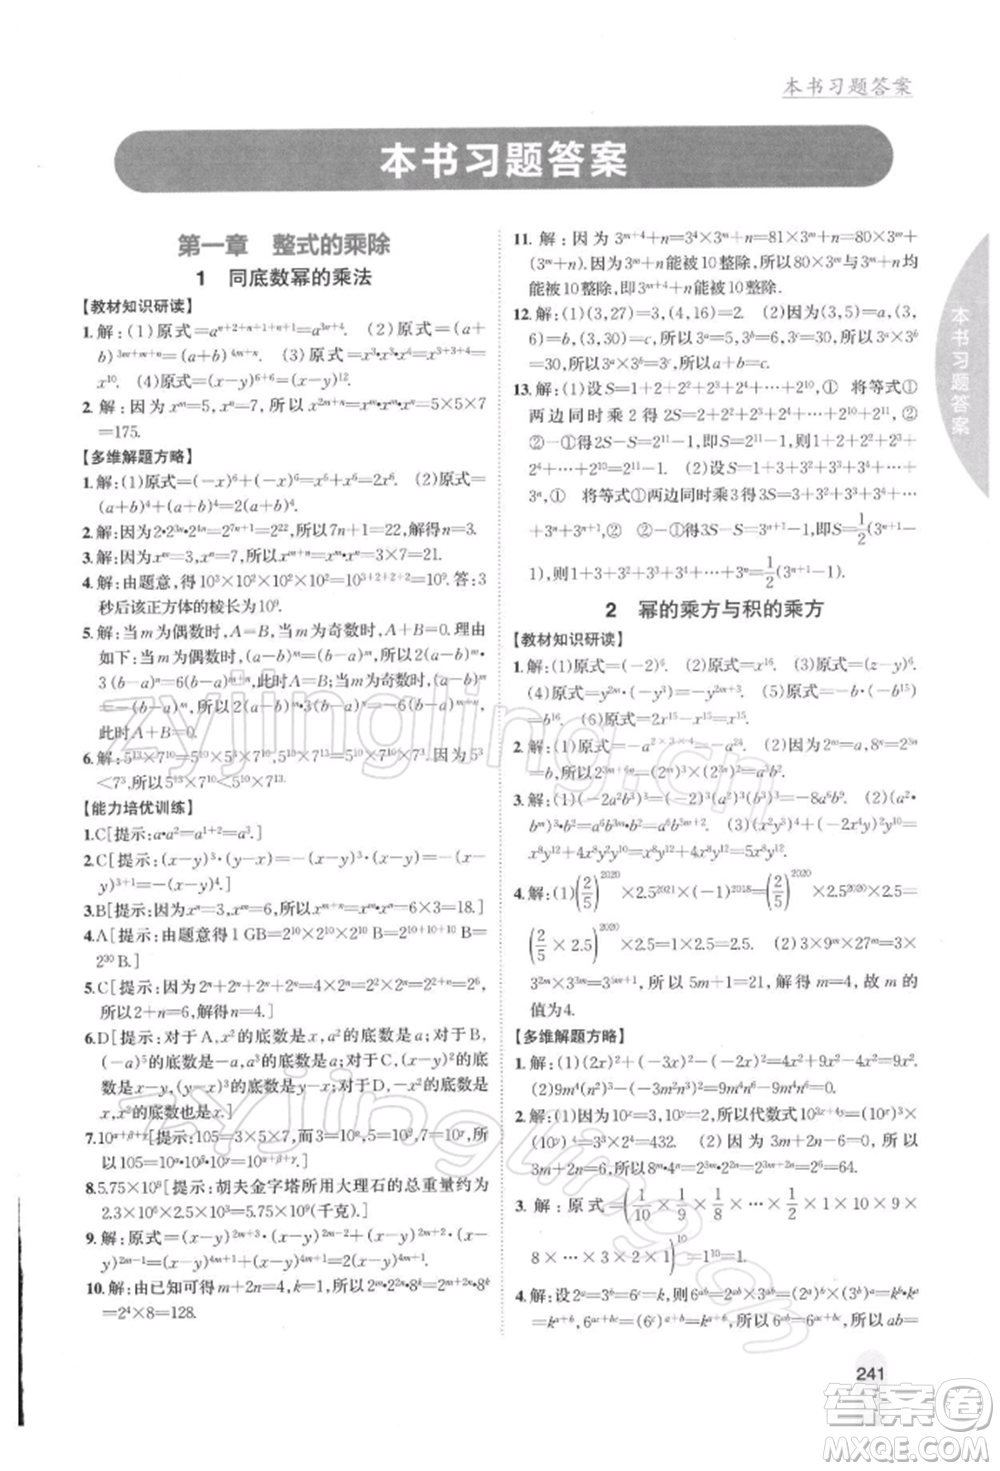 本书习题答案
本书习题答案
第一章 整式的乘除
1 同底数幂的乘法
【教材知识研读】
1.解:(1)原式=a^{n+2+n+1+n+1}=a^{3n+4}. (2)原式=(a+
b)^{3m+m+n}=(a+b)^{4m+n}. (3)原式=x³•x³•x⁴=x^{3+3+4}=
x^{10}. (4)原式=(x-y)^{6+6}=(x-y)^{12}.
2.解:因为x^m=5,x^n=7,所以x^{2m+n}=x^m•x^m•x^n=5×5×7
=175.
【多维解题方略】
1.解:(1)原式=-x^6+(-x^6)=-2x^6. (2)原式=(a+
b)^4+(a+b)^4=2(a+b)^4.
2.解:因为2•2^{3n}•2^{4n}=2^{7n+1}=2^{22},所以7n+1=22,解得n=3.
3.解:因为x^m=3,x^n=7,所以x^{m+n}=x^m•x^n=3×7=21.
4.解:由题意,得10³×10²×10²×10²=10^{3+2+2+2}=10⁹.答:3
秒后该正方体的棱长为10⁹.
5.解:当m为偶数时,A=B,当m为奇数时,A+B=0.理由
如下:当m为偶数时,(a-b)^m=(b-a)^m,所以2(a-b)^m•
3(b-a)^m=6(b-a)^{2m},此时A=B;当m为奇数时,(a-b)^m
=-(b-a)^m,所以-2(b-a)^m•3(b-a)^m=-6(b-a)^{2m},
此时A+B=0.
6.解:5^{13}×7^{10}=5³×5^{10}×7^{10},5^{10}×7^{13}=5^{10}×7^{10}×7³.因为5³
<7³,所以5^{13}×7^{10}<5^{10}×7^{13}.
【能力培优训练】
1.C[提示:a•a²=a^{1+2}=a³.]
2.C[提示:(x-y)³•(y-x)=-(x-y)³•(x-y)=-(x-
y)^{3+1}=-(x-y)⁴.]
3.B[提示:因为x^a=3,x^b=6,所以x^{a+b}=x^a•x^b=6×3=18.]
4.A[提示:由题意得1 GB=2^{10}×2^{10}×2^{10} B=2^{10+10+10} B=
2^{30} B.]
5.C[提示:因为2^n+2^n+2^n+2^n=4×2^n=2²×2^n=2^{2+n}=2⁶,
所以2+n=6,解得n=4.]
6.D[提示:对于A,x²的底数是x,a²的底数是a;对于B,
(-a)⁵的底数是-a,a³的底数是a;对于C,(x-y)²的底
数是x-y,(y-x)³的底数是y-x;对于D,-x²的底数是
x,x的底数也是x.]
7.10^{α+β+γ}[提示:105=3×5×7,而3=10^α,5=10^β,7=10^γ,所
以105=10^α•10^β•10^γ=10^{α+β+γ}.]
8.5.75×10⁹[提示:胡夫金字塔所用大理石的总重量约为
2.3×10⁶×2.5×10³=5.75×10⁹(千克).]
9.解:原式=(x-y)^{2m+3}•(x-y)^{2m-2}=(x-y)^{4m+1}.
10.解:由已知可得m+2n=4,所以2^m•2^{2n}•8=2^{m+2n}•8
=2⁴×8=128.
11.解:因为3^{m+4}+n=3⁴×3^m+n=81×3^m+n=80×3^m+
(3^m+n),3^m+n能被10整除,80×3^m能被10整除,所以
3^{m+4}+n能被10整除.
12.解:(1)(3,27)=3,(4,16)=2. (2)因为(3,5)=a,(3,
6)=b,(3,30)=c,所以3^a=5,3^b=6,3^c=30.因为5×6
=30,所以3^a×3^b=3^c,所以a+b=c.
13.解:(1)设S=1+2+2²+2³+2⁴+…+2^{10},① 将等式①
两边同时乘2得2S=2+2²+2³+2⁴+…+2^{10}+2^{11},②
②-①得2S-S=2^{11}-1,即S=2^{11}-1,所以1+2+2²+
2³+2⁴+…+2^{10}=2^{11}-1. (2)设S=1+3+3²+3³+3⁴+…+
3^n,① 将等式①两边同时乘3得3S=3+3²+3³+3⁴+
…+3^n+3^{n+1},② ②-①得3S-S=3^{n+1}-1,即S=\frac{1}{2}(3^{n+1}-
1),所以1+3+3²+3³+3⁴+…+3^n=\frac{1}{2}(3^{n+1}-1).
2 幂的乘方与积的乘方
【教材知识研读】
1.解:(1)原式=(-2)⁶=2⁶. (2)原式=x^{16}. (3)原式=(z-y)⁶.
(4)原式=y^{2m}•(-y³)=-y^{2m+3}. (5)原式=(-b)^{16}
=b^{16}. (6)原式=x^{15}+x^{15}=2x^{15}.
2.解:(1)原式=-a^{2×3×4}=-a^{24}. (2)因为2^n=a,8^n=b,
所以2^{6n}=2^{3n}•2^{3n}=8^n•8^n=b².
3.解:(1)(-2a²b³)³=(-2)³a⁶b⁹=-8a⁶b⁹. (2)(a²•
b^m)³•b²=a⁶b^{3m}•b²=a⁶b^{3m+2}. (3)(x²y³)⁴+(-2x⁴y²)²y^8=
x⁸y^{12}+4x⁸y⁴•y⁸=x⁸y^{12}+4x⁸y^{12}=5x⁸y^{12}.
4.解:(1)(\frac{2}{5})^{2020}×2.5^{2021}×(-1)^{2018}=(\frac{2}{5})^{2020}×2.5^{2020}×2.5=
(\frac{2}{5}×2.5)^{2020}×2.5=1×2.5=2.5. (2)3×9^m×27^m=
3×3^{2m}×3^{3m}=3^{5m+1}=3^{21},即5m+1=21,解得m=4,故m的
值为4.
【多维解题方略】
1.解:(1)(2x)²+(-3x)²-(-2x)²=4x²+9x²-4x²=9x².
(2)9m⁴(n²)²+(-3m²n²)²=9m⁴n⁴+9m⁴n⁴=18m⁴n⁴.
2.解:(1)因为10^x=3,10^y=2,所以代数式10^{3x+4y}=(10^x)³×
(10^y)⁴=3³×2⁴=432. (2)因为3m+2n-6=0,所以
3m+2n=6,所以8^m•4^n=2^{3m}•2^{2n}=2^{3m+2n}=2⁶=64.
3.解:原式=(\frac{1}{10}×\frac{1}{9}×\frac{1}{8}×…×\frac{1}{2}×1×10×9×
8×…×3×2×1)^{10}=1^{10}=1.
4.解:设2^a=3^b=6^c=k,所以6^{ab}=(2×3)^{ab}=(2^a)^b×(3^b)^a=
k^{a+b},6^{ac+bc}=(6^c)^{a+b}=k^{a+b},所以6^{ab}=6^{ac+bc},所以ab=
本书习题答案
241
答案圈
MXQE.COM
zyjingling.com
zyjingling.com